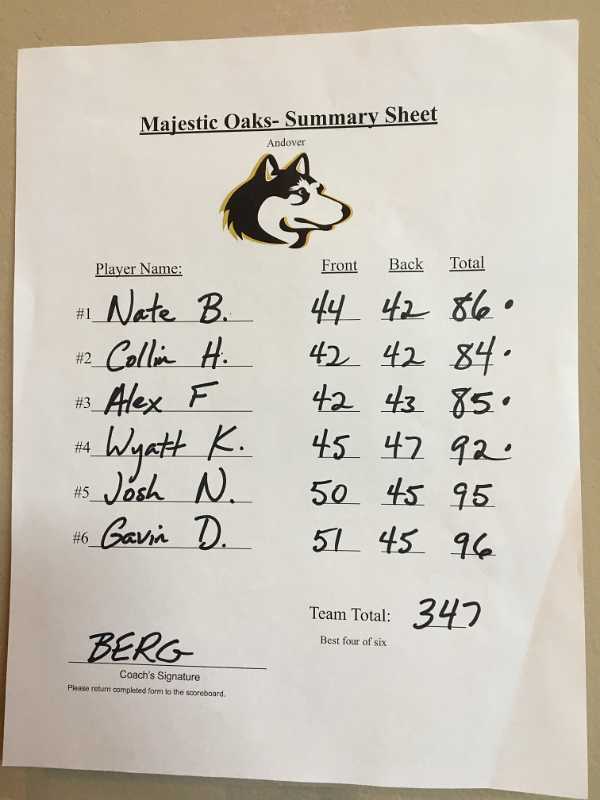 Majestic Oaks- Summary Sheet
Andover
Player Name: Front Back Total
#1 Nate B. 44 42 86 •
#2 Collin H. 42 42 84 •
#3 Alex F 42 43 85 •
#4 Wyatt K. 45 47 92 •
#5 Josh N. 50 45 95
#6 Gavin D. 51 45 96
Team Total: 347
Best four of six
BERG
Coach's Signature
Please return completed form to the scoreboard.